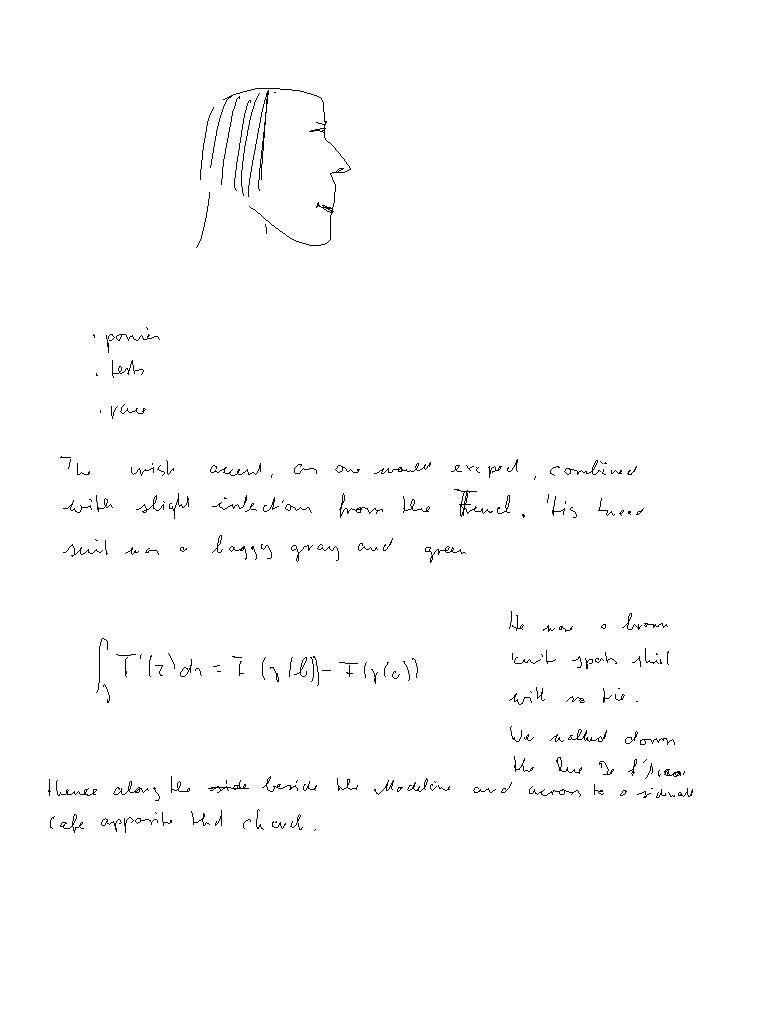 · tests
· race
The irish accent, as one would expect, combined
with slight inflections from the French. His tweed
suit was a baggy gray and green
∫_γ F'(z) dz = F(γ(b)) - F(γ(a))
He wore a brown
knit sports shirt
with no tie.
We walked down
the Rue De
thence along the side beside the Madeleine and across to a sidewalk
cafe opposite that church.